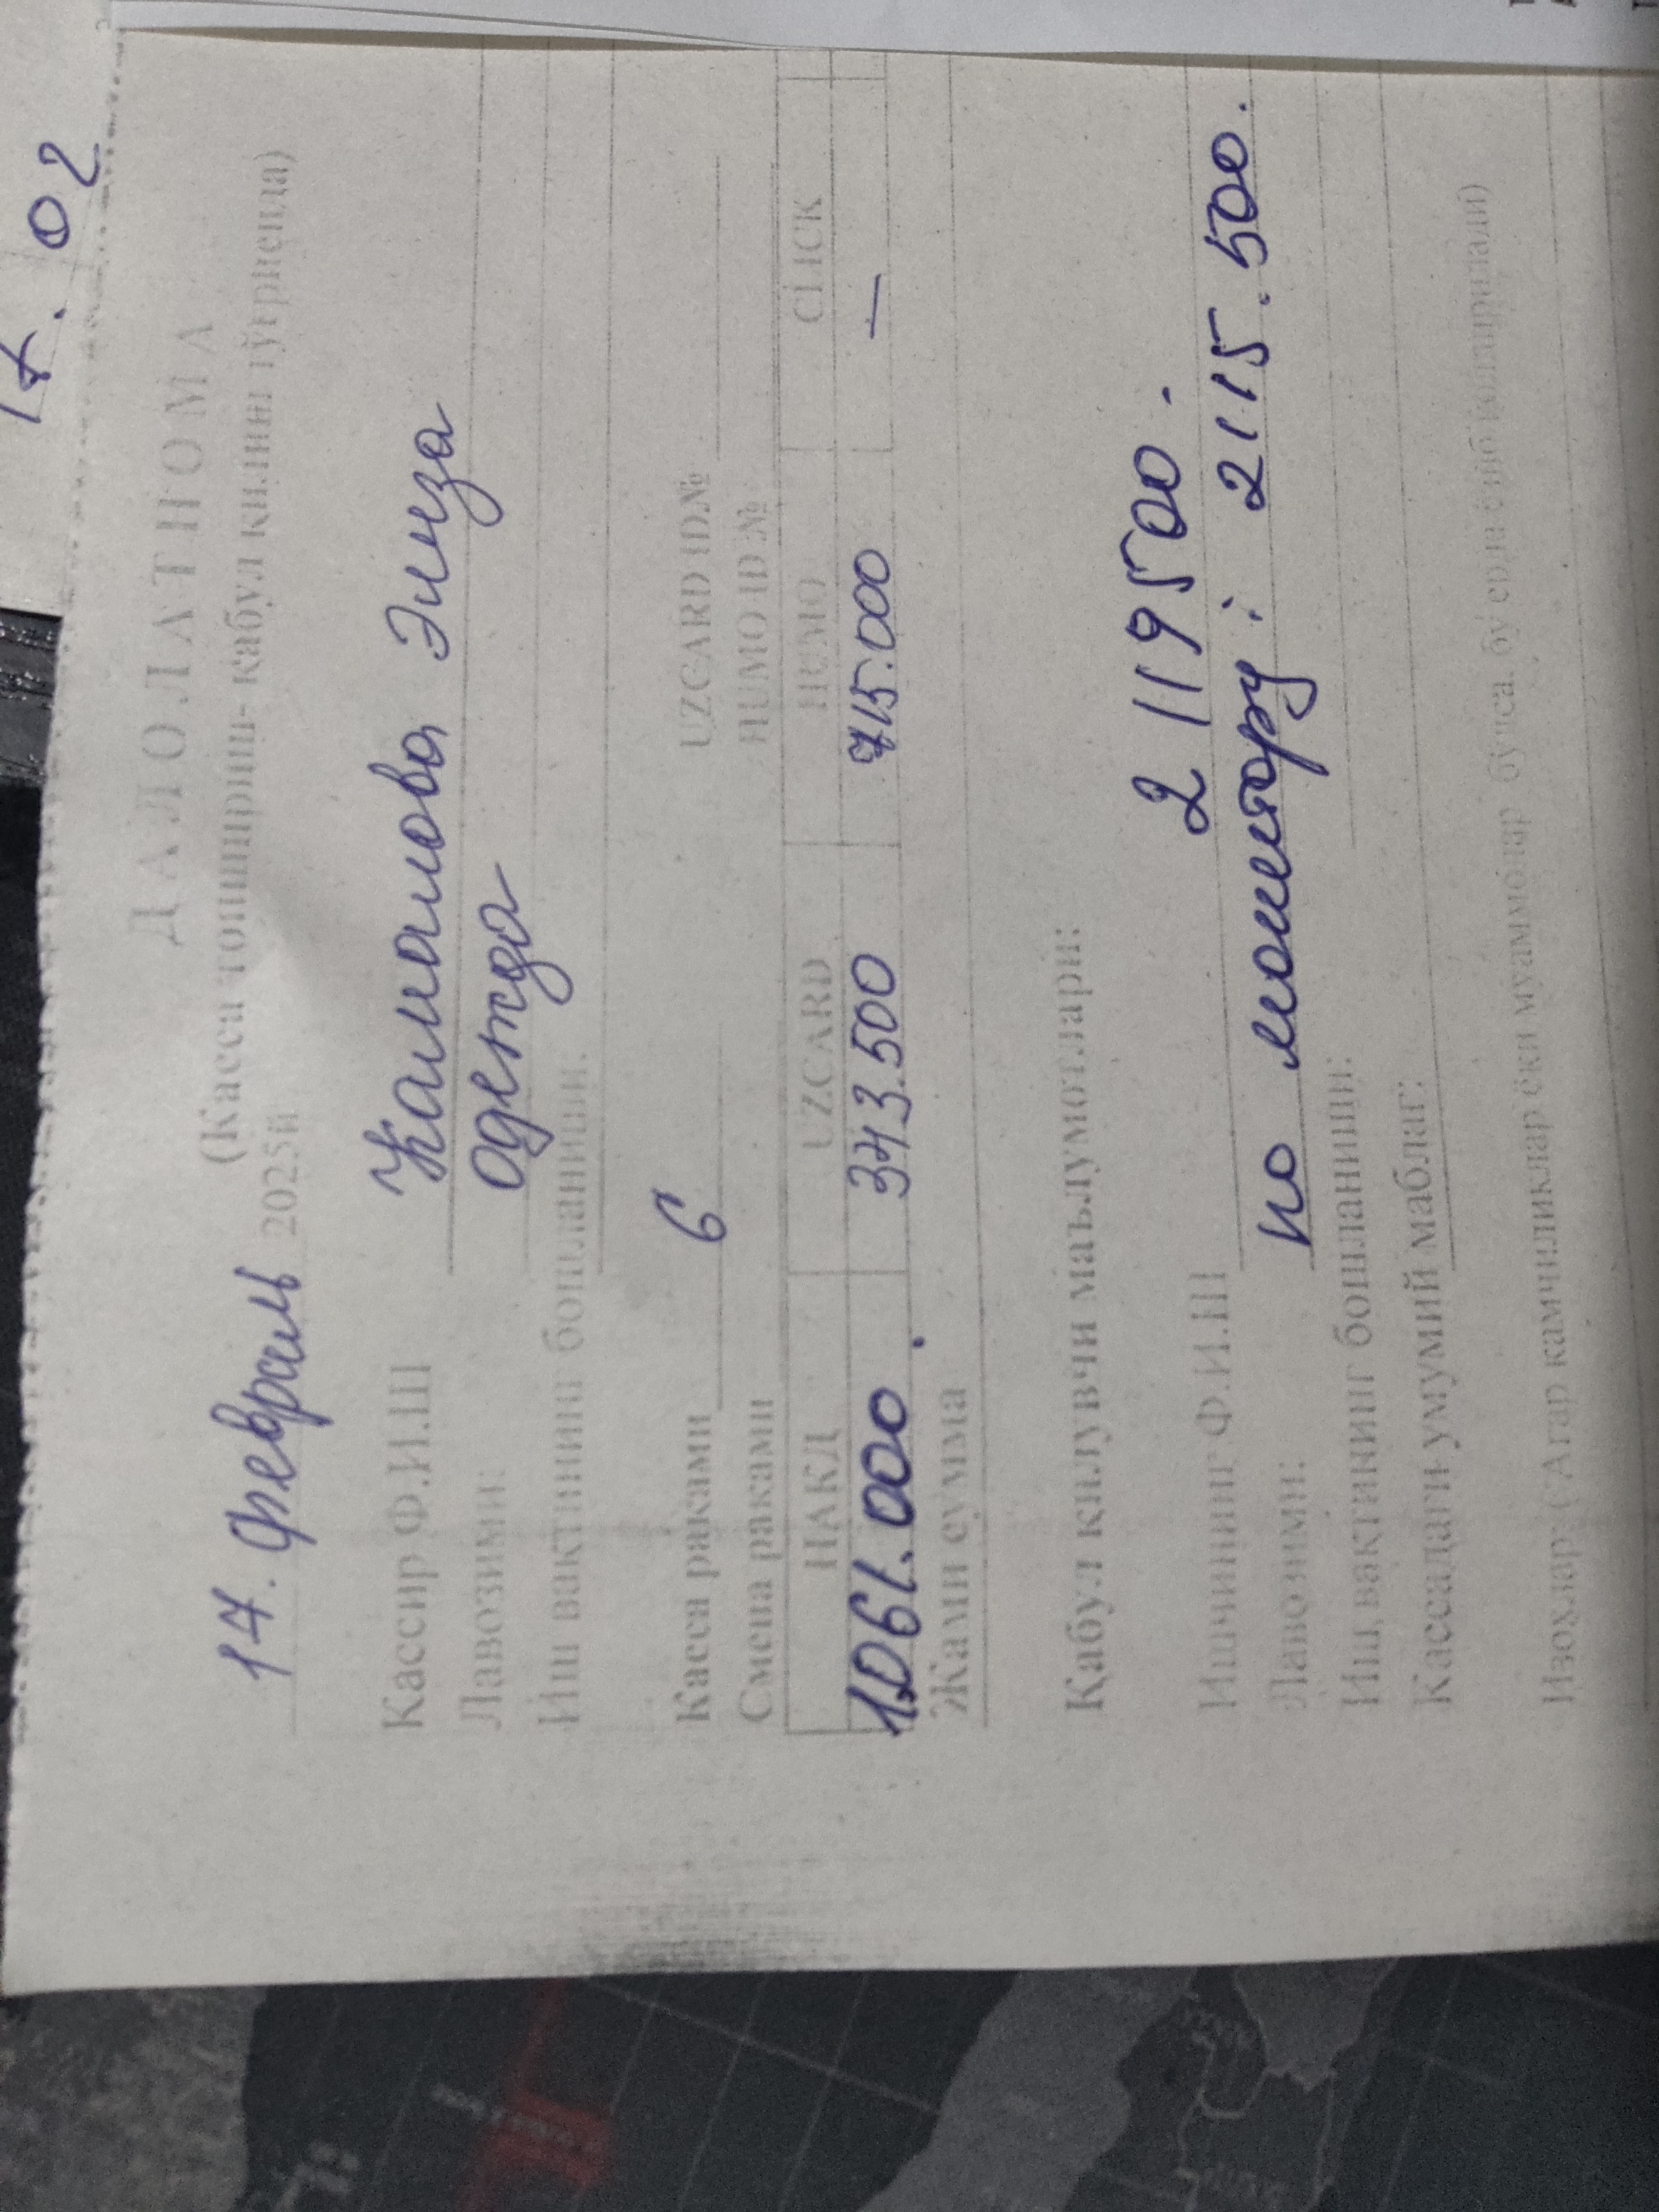 17. 02
ДАЛОЛАТНОМА
(Касса топшириш- кабул килиш тўғрисида)
17. февраль 2025й
Кассир Ф.И.Ш Камалова Элиза
Лавозими: одежда
Иш вактининг бошланиши:
Касса раками 6 UZCARD ID.№
Смена раками HUMO ID №
НАКД UZCARD HUMO CLICK
1061.000. 343.500 715.000 —
Жами сумма
Қабул килувчи маълумотлари:
2 119500.
Ишчининг Ф.И.Ш
по монитору: 2115.500.
Лавозими:
Иш вактининг бошланиши:
Кассадаги умумий маблағ:
Изохлар: (Агар камчиликлар ёки муаммолар бўлса, бу ерда ёзиб қолдирилади)